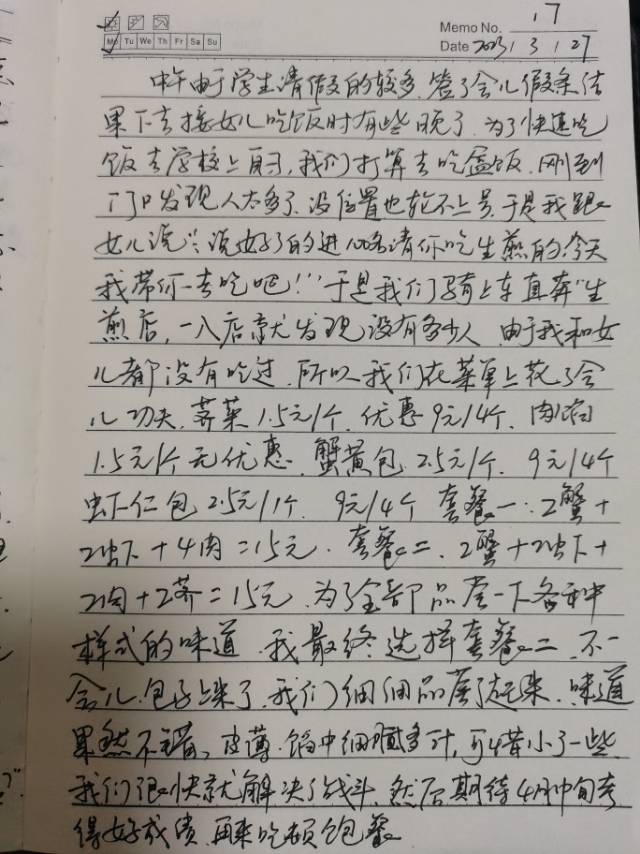 Memo No. 17
Mo Tu We Th Fr Sa Su
Date 2023 / 3 / 27
中午由于学生请假的较多,签了会儿假条结
果下去接女儿吃饭时有些晚了,为了快速吃
饭去学校上自习,我们打算去吃盒饭,刚到
门口发现人太多了,没位置也轮不上号,于是我跟
女儿说:“说好了的进 请你吃生煎的,今天
我带你去吃吧!”于是我们骑上车直奔“生
煎店,一入店就发现没有多少人,由于我和女
儿都没有吃过,所以我们在菜单上花了会
儿功夫,荠菜1.5元/个,优惠9元/4个,肉馅
1.5元/个无优惠,蟹黄包2.5元/个,9元/4个
虾仁包2.5元/1个,9元/4个 套餐一:2蟹+
2虾+4肉=15元,套餐二,2蟹+2虾+
2肉+2荠=15元,为了全部品尝一下各种
样式的味道,我最终选择套餐二,不一
会儿,包子上来了,我们细细品尝了起来,味道
果然不错,皮薄,馅中细腻多汁,可惜小了一些
我们很快就解决了战斗,然后期待4月中旬考
得好成绩,再来吃顿饱餐